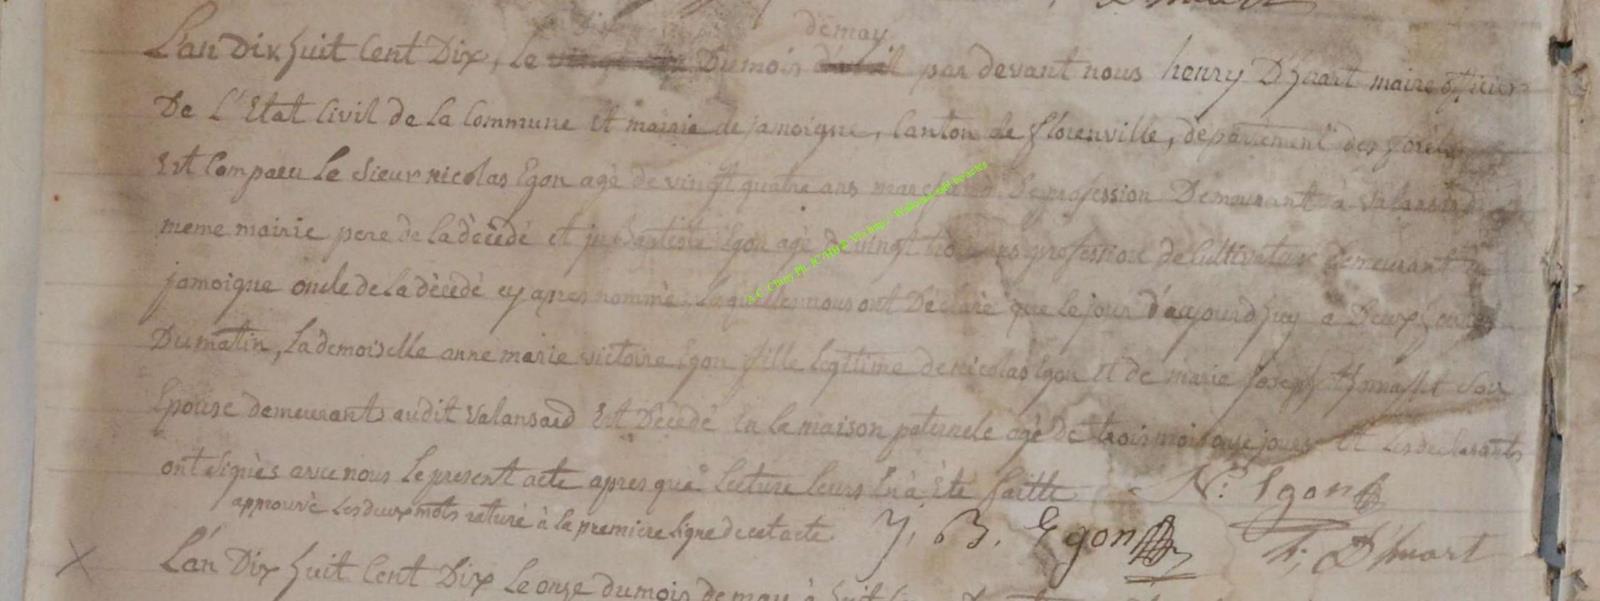 demay
L'an Dix huit Cent Dix, le Dumois par devant nous henry D'huart maire officier
De L'Etat Civil de la Commune et mairie de jamoigne, Canton de florenville, departement des forêts
Est Comparu Le Sieur nicolas Egon agè de vingt quatre ans De profession Demeurant à Valansard
meme mairie pere de la dècedè et jean Egon agè de vingt profession de Cultivateur demeurant a
jamoigne oncle de la dècedè cy apres nommè, Lesquelles nous ont Dèclarè que le jour d'aujourd'huy a Deux heures
Du matin, La demoiselle anne marie victoire Egon fille legitime de nicolas Egon et de marie joseph Son
Epouse demeurants audit valansard Est Dècedè En la maison paternele agè de trois mois onze jours Et les declarants
ont signès avec nous le present acte apres que lecture leurs En à Ete faitte N: Egon
approuvè Les deux mots raturè à la premiere ligne de cet acte J, B, Egon h, D'huart
L'an Dix huit Cent Dix Le onze dumois de may à huit